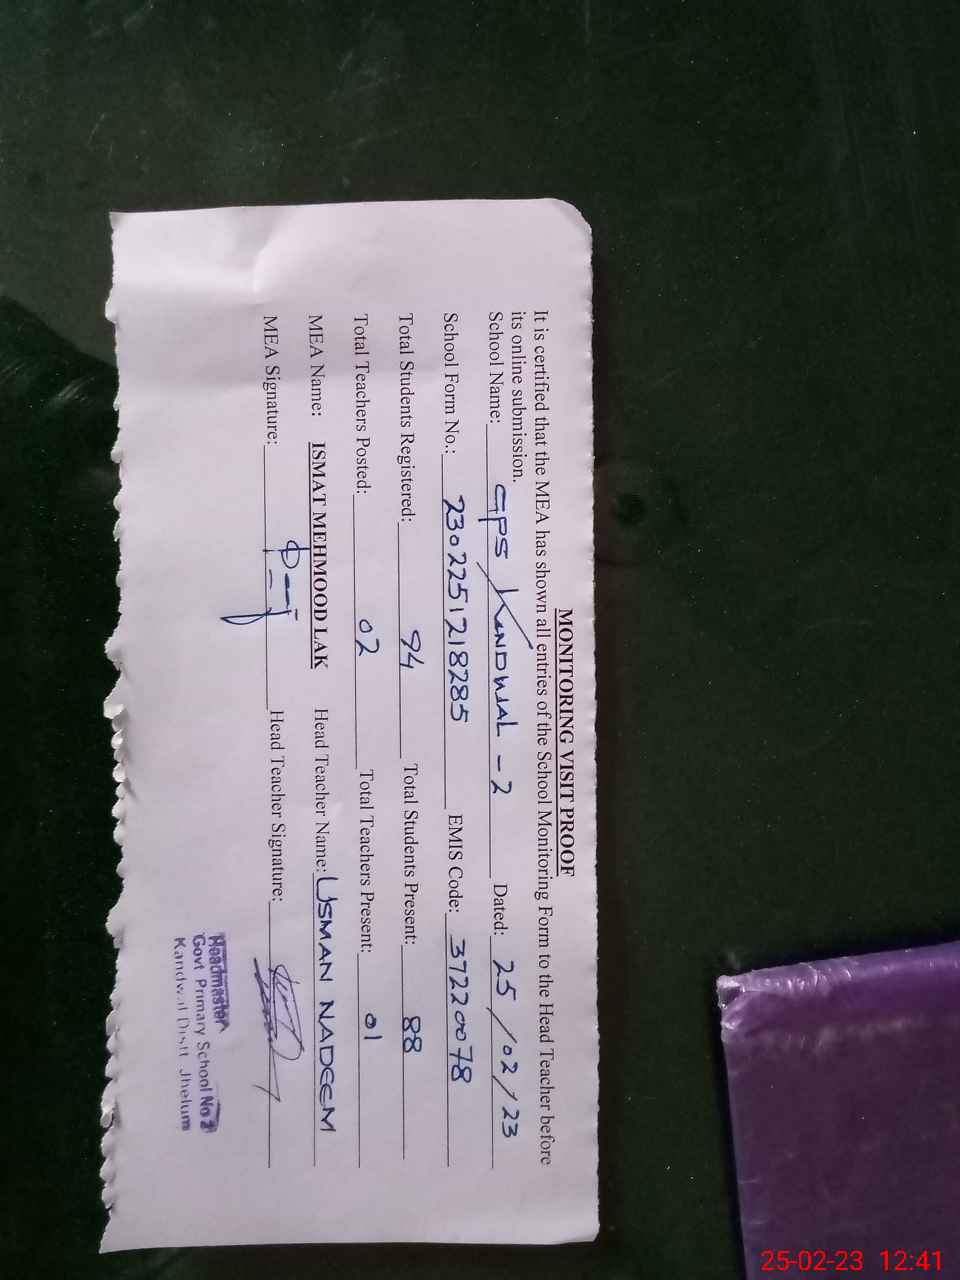 MONITORING VISIT PROOF
It is certified that the MEA has shown all entries of the School Monitoring Form to the Head Teacher before
its online submission.
School Name: GPS KANDWAL - 2 Dated: 25/02/23
School Form No.: 2302251218285 EMIS Code: 37220078
Total Students Registered: 94 Total Students Present: 88
Total Teachers Posted: 02 Total Teachers Present: 01
MEA Name: ISMAT MEHMOOD LAK Head Teacher Name: USMAN NADEEM
MEA Signature: Head Teacher Signature:
Headmaster
Govt Primary School No 2
Kandwal Distt Jhelum
25-02-23 12:41